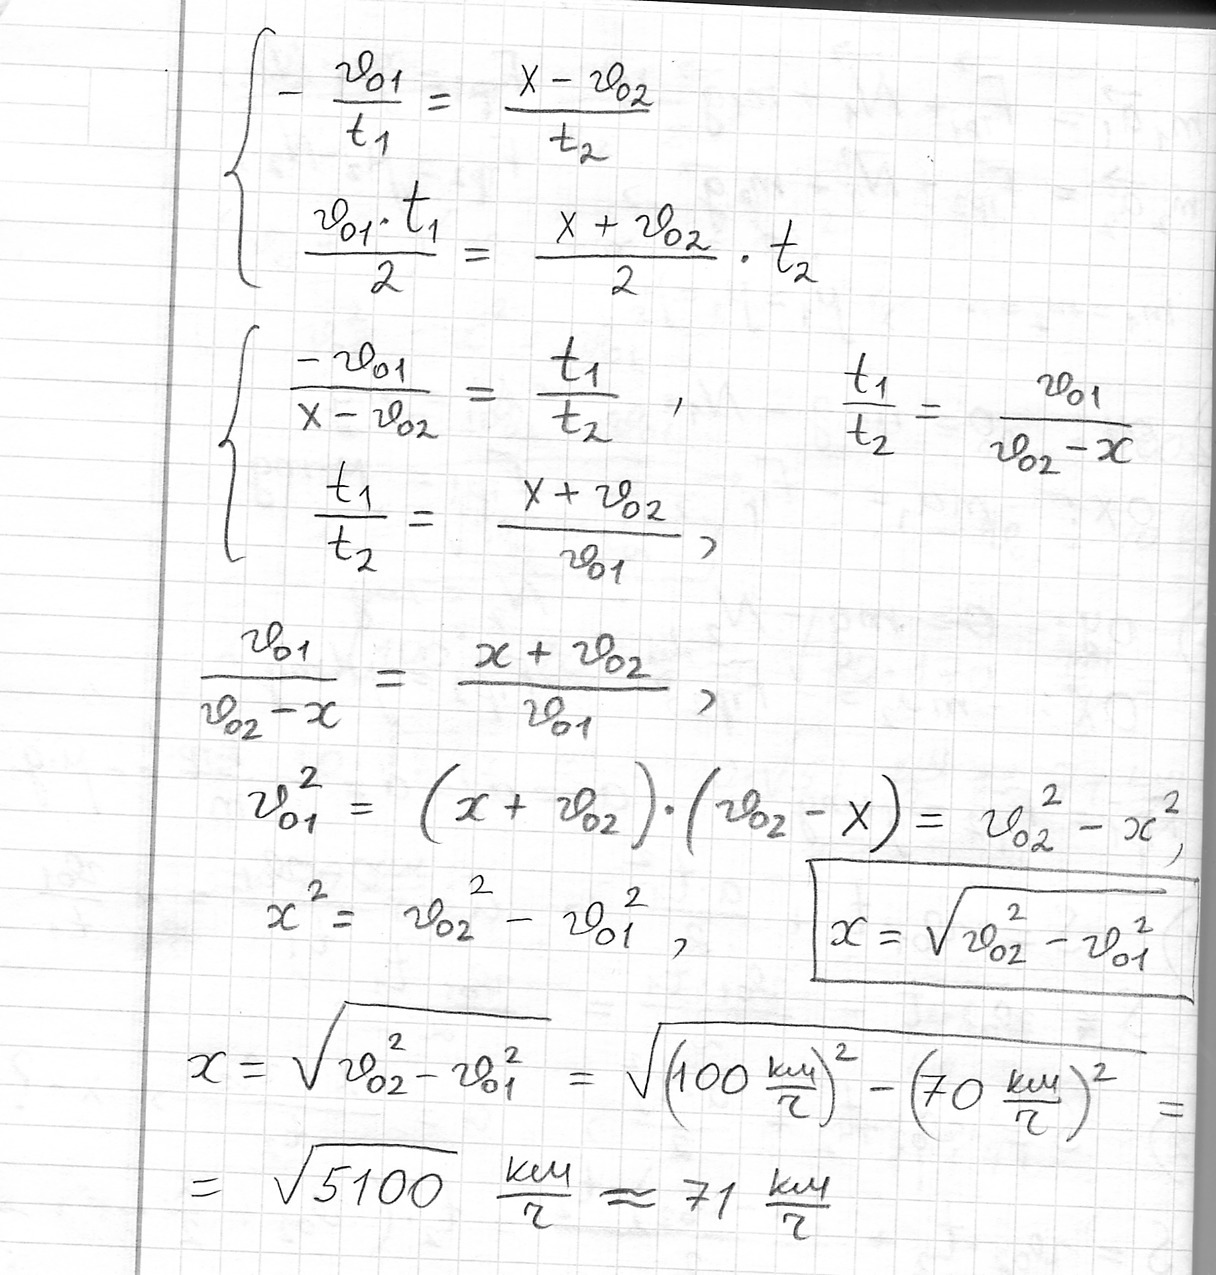 - v₀₁/t₁ = (x - v₀₂)/t₂
(v₀₁ · t₁)/2 = (x + v₀₂)/2 · t₂
-v₀₁/(x - v₀₂) = t₁/t₂ , t₁/t₂ = v₀₁/(v₀₂ - x)
t₁/t₂ = (x + v₀₂)/v₀₁ ,
v₀₁/(v₀₂ - x) = (x + v₀₂)/v₀₁ ,
v₀₁² = (x + v₀₂) · (v₀₂ - x) = v₀₂² - x² ,
x² = v₀₂² - v₀₁² , x = √(v₀₂² - v₀₁²)
x = √(v₀₂² - v₀₁²) = √((100 км/ч)² - (70 км/ч)²) =
= √5100 км/ч ≈ 71 км/ч